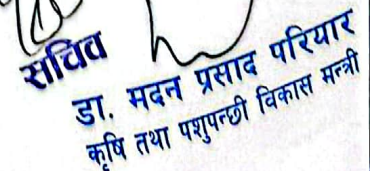 सचिव
डा. मदन प्रसाद परियार
कृषि तथा पशुपन्छी विकास मन्त्री